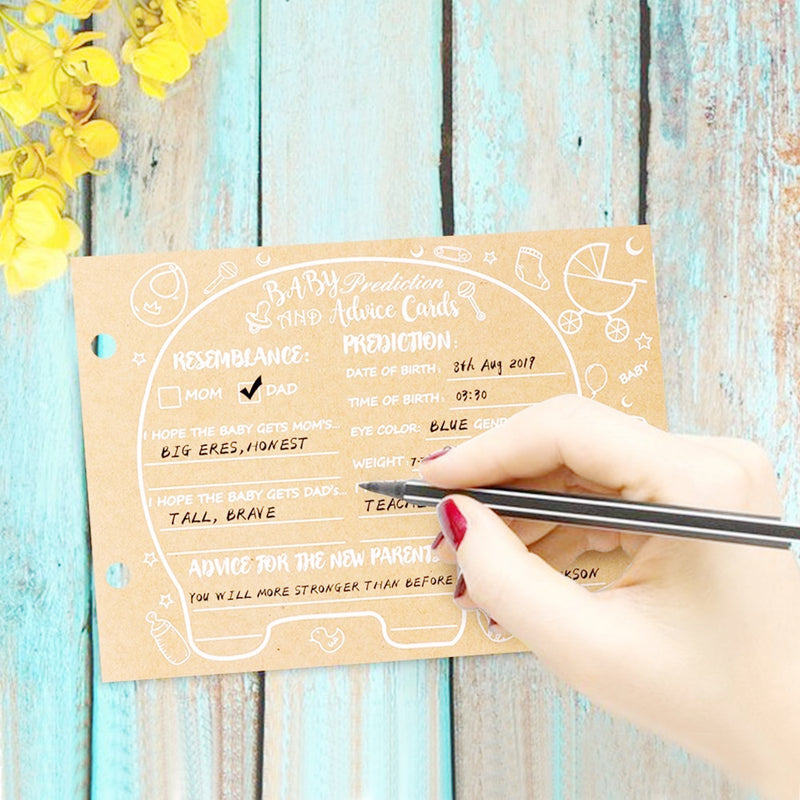 BABY Prediction
AND Advice Cards
RESEMBLANCE:
MOM DAD
I HOPE THE BABY GETS MOM'S...
BIG ERES, HONEST
I HOPE THE BABY GETS DAD'S...
TALL, BRAVE
PREDICTION:
DATE OF BIRTH: 8th Aug 2019
TIME OF BIRTH: 03:30
EYE COLOR: BLUE
WEIGHT
ADVICE FOR THE NEW PARENT
YOU WILL MORE STRONGER THAN BEFORE
BABY